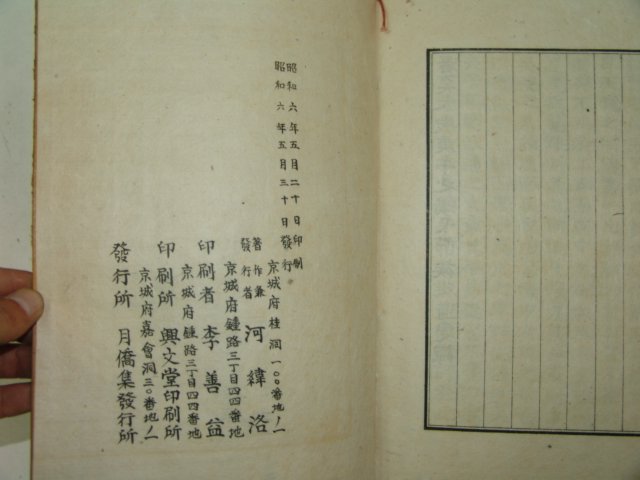 昭和六年五月二十日印刷
昭和六年五月三十日發行
京城府桂洞一〇〇番地ノ一
著作兼發行者 河緯洛
京城府鍾路三丁目四四番地
印刷者 李善益
京城府鍾路三丁目四四番地
印刷所 興文堂印刷所
京城府嘉會洞三〇番地ノ一
發行所 月僑集發行所